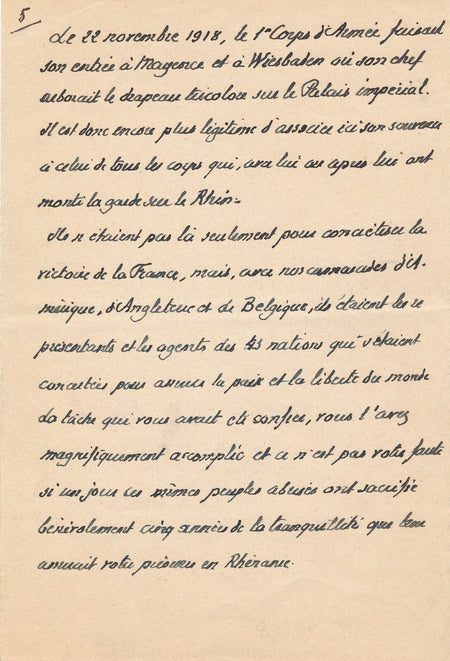 5
Le 22 novembre 1918, le 1er Corps d'Armée faisait
son entrée à Mayence et à Wiesbaden où son chef
arborait le drapeau tricolore sur le Palais impérial.
Il est donc encore plus légitime d'associer ici son souvenir
à celui de tous les corps qui, avec lui ou après lui ont
monté la garde sur le Rhin.
Ils n'étaient pas là seulement pour concrétiser la
victoire de la France, mais, avec nos camarades d'A-
mérique, d'Angleterre et de Belgique, ils étaient les re
présentants et les agents des nations qui s'étaient
concertées pour assurer la paix et la liberté du monde
La tâche qui vous avait été confiée, vous l'avez
magnifiquement accomplie et ce n'est pas votre faute
si un jour ces mêmes peuples abusés ont sacrifié
bénévolement cinq années de la tranquillité que leur
assurait votre présence en Rhénanie.